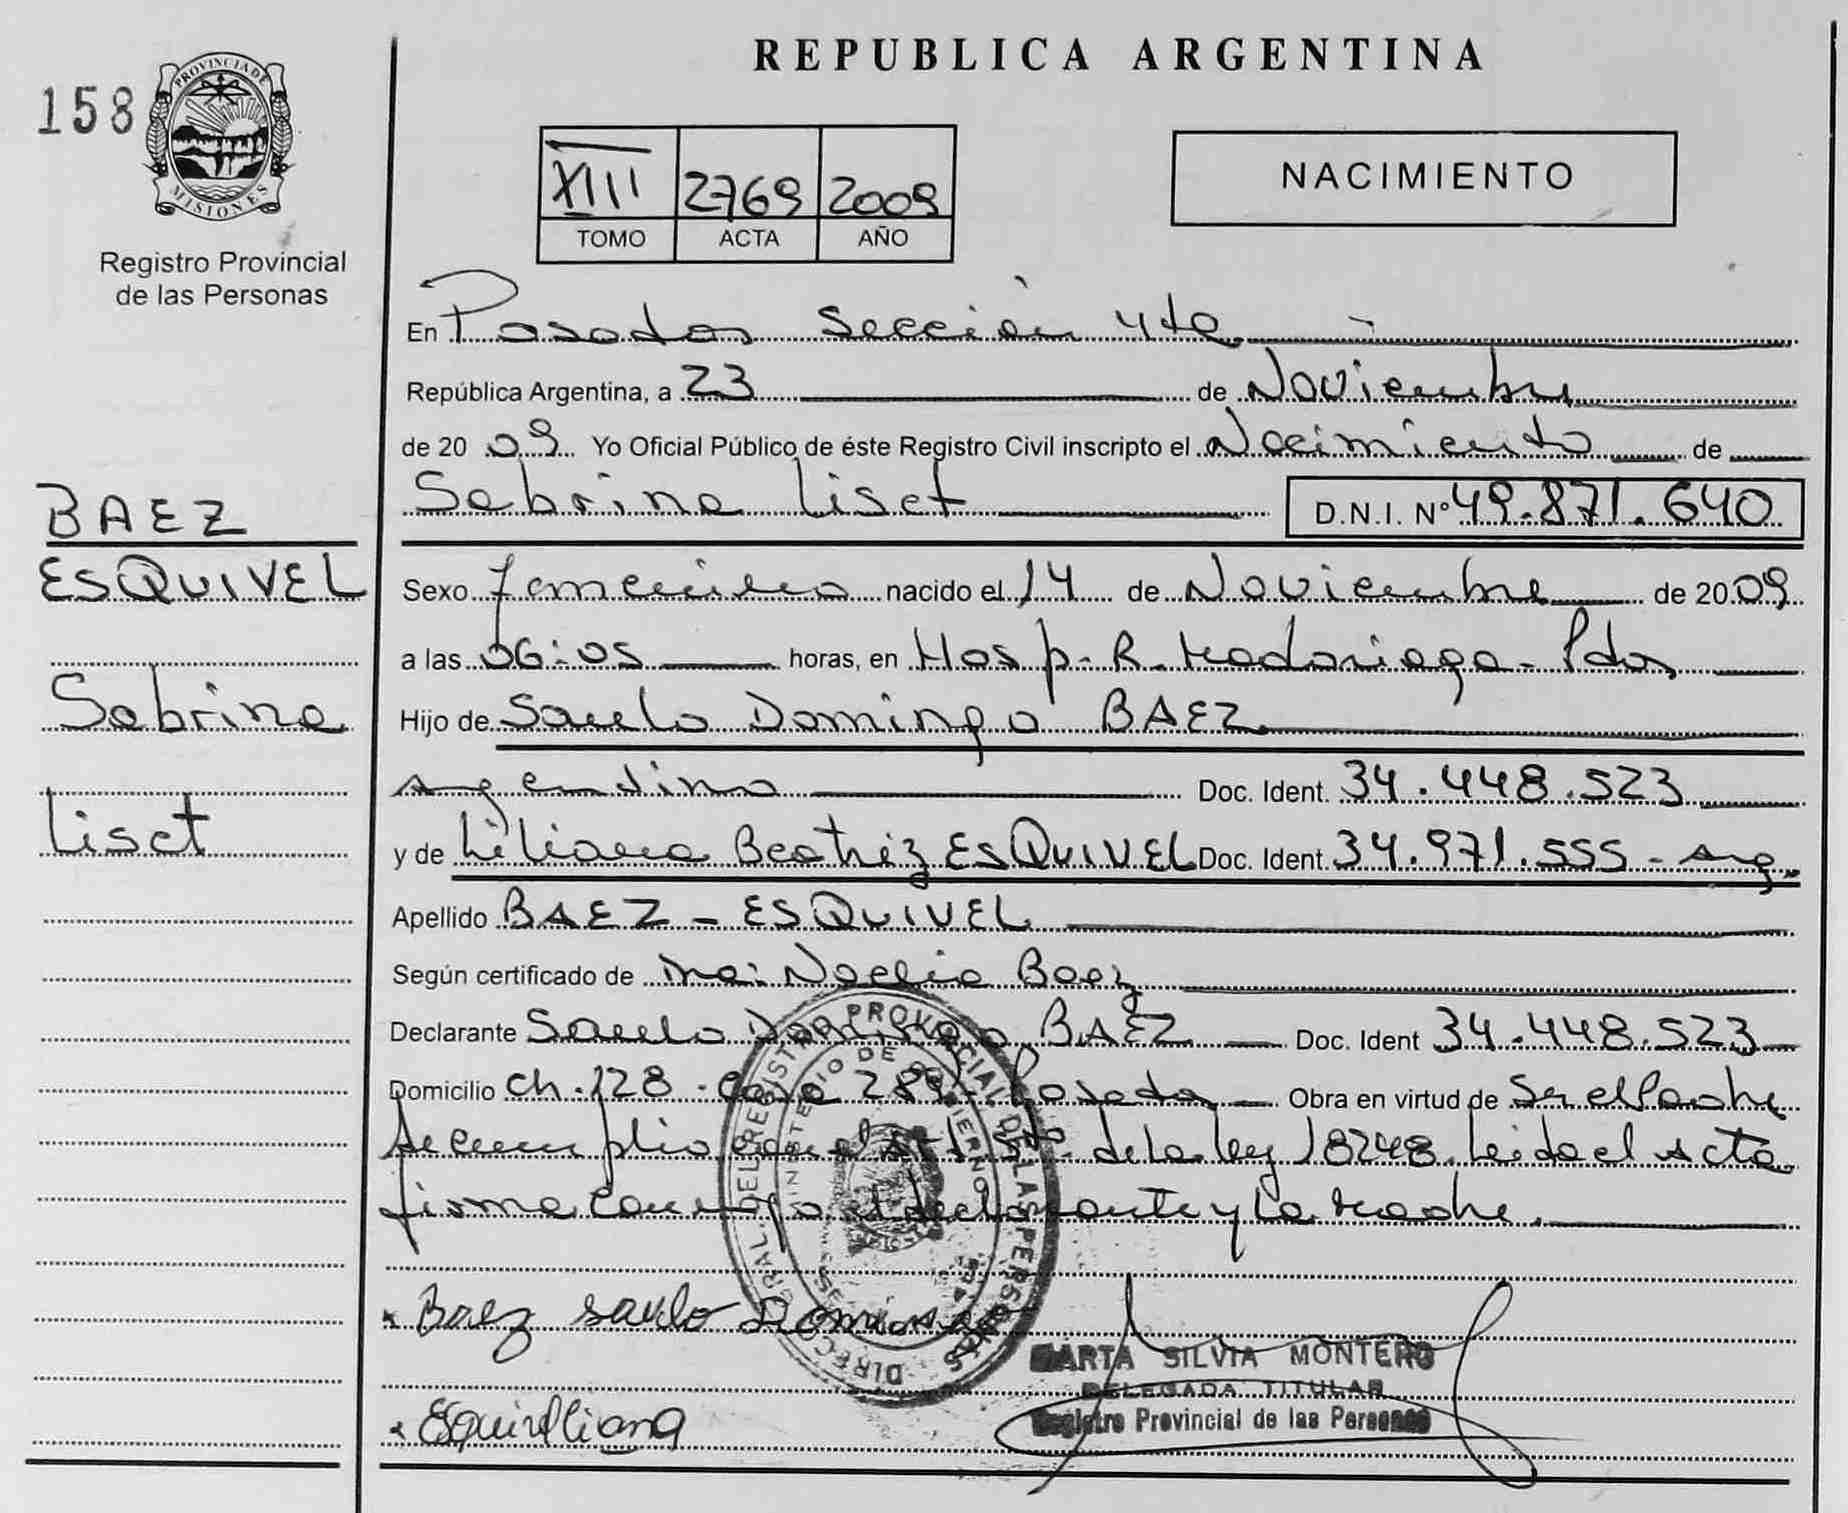 REPUBLICA ARGENTINA
158
PROVINCIA DE
MISIONES
Registro Provincial
de las Personas
XIII 2769 2009
TOMO ACTA AÑO
NACIMIENTO
En Posadas Sección 4ta
República Argentina, a 23 de Noviembre
de 2009 Yo Oficial Público de éste Registro Civil inscripto el Nacimiento de
Sabrina Liset D.N.I. Nº 49.871.640
BAEZ
ESQUIVEL
Sabrina
Liset
Sexo Femenino nacido el 14 de Noviembre de 2009
a las 06:05 horas, en Hosp. R. Madariaga - Pdas
Hijo de Saulo Domingo BAEZ
Argentino Doc. Ident. 34.448.523
y de Liliana Beatriz ESQUIVEL Doc. Ident. 34.971.555 - Arg.
Apellido BAEZ - ESQUIVEL
Según certificado de Noelia Baez
Declarante Saulo Domingo BAEZ Doc. Ident 34.448.523
Domicilio Ch. 128 - Casa 289 - Posadas Obra en virtud de Ser el Padre
Se cumplio con el Art. 5to de la ley 18248. Leida el Acta
firma conmigo el declarante y la Madre.
DIRECC GRAL. DEL REGISTRO PROVINCIAL DE LAS PERSONAS
MINISTERIO DE GOBIERNO
Baez Saulo Domingo
MARTA SILVIA MONTERO
DELEGADA TITULAR
Registro Provincial de las Personas
Esquivel Liliana